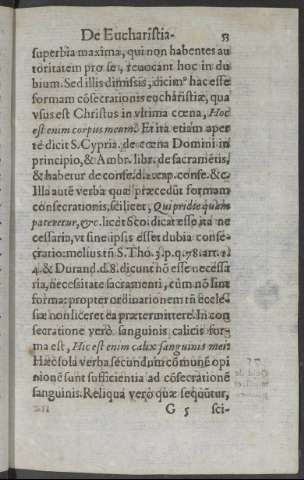 De Eucharistia. 53
superbia maxima, qui non habentes au
toritatem pro se, reuocant hoc in du
bium. Sed illis dimissis, dicimꝰ hac esse
formam cōsecrationis eucharistiæ, qua
vsus est Christus in vltima cœna, Hoc
est enim corpus meum. Et ita etiam aper
tè dicit S. Cypria. de cœna Domini in
principio, & Ambr. libr. de sacramētis,
& habetur de conse. d. 2. cap. conse. &c.
Illa autē verba quæ præcedūt formam
consecrationis, scilicet, Qui pridie quàm
pateretur, &c. licèt Sco. dicat esse ita ne
cessaria, vt sine ipsis esset dubia conse-
cratio: melius tñ S. Tho. 3. p. q. 78. art. 1.
4. & Durand. d. 8. dicunt nō esse necessa
ria, necessitate sacramenti, cùm nō sint
forma: propter ordinationem tñ eccle-
siæ non liceret ea prætermittere. In con
secratione verò sanguinis calicis for-
ma est, Hic est enim calix sanguinis mei.
Hæc sola verba secundùm cōmunē opi
nionē sunt sufficientia ad cōsecrationē
sanguinis. Reliqua verò quæ sequūtur,
G 5 sci-